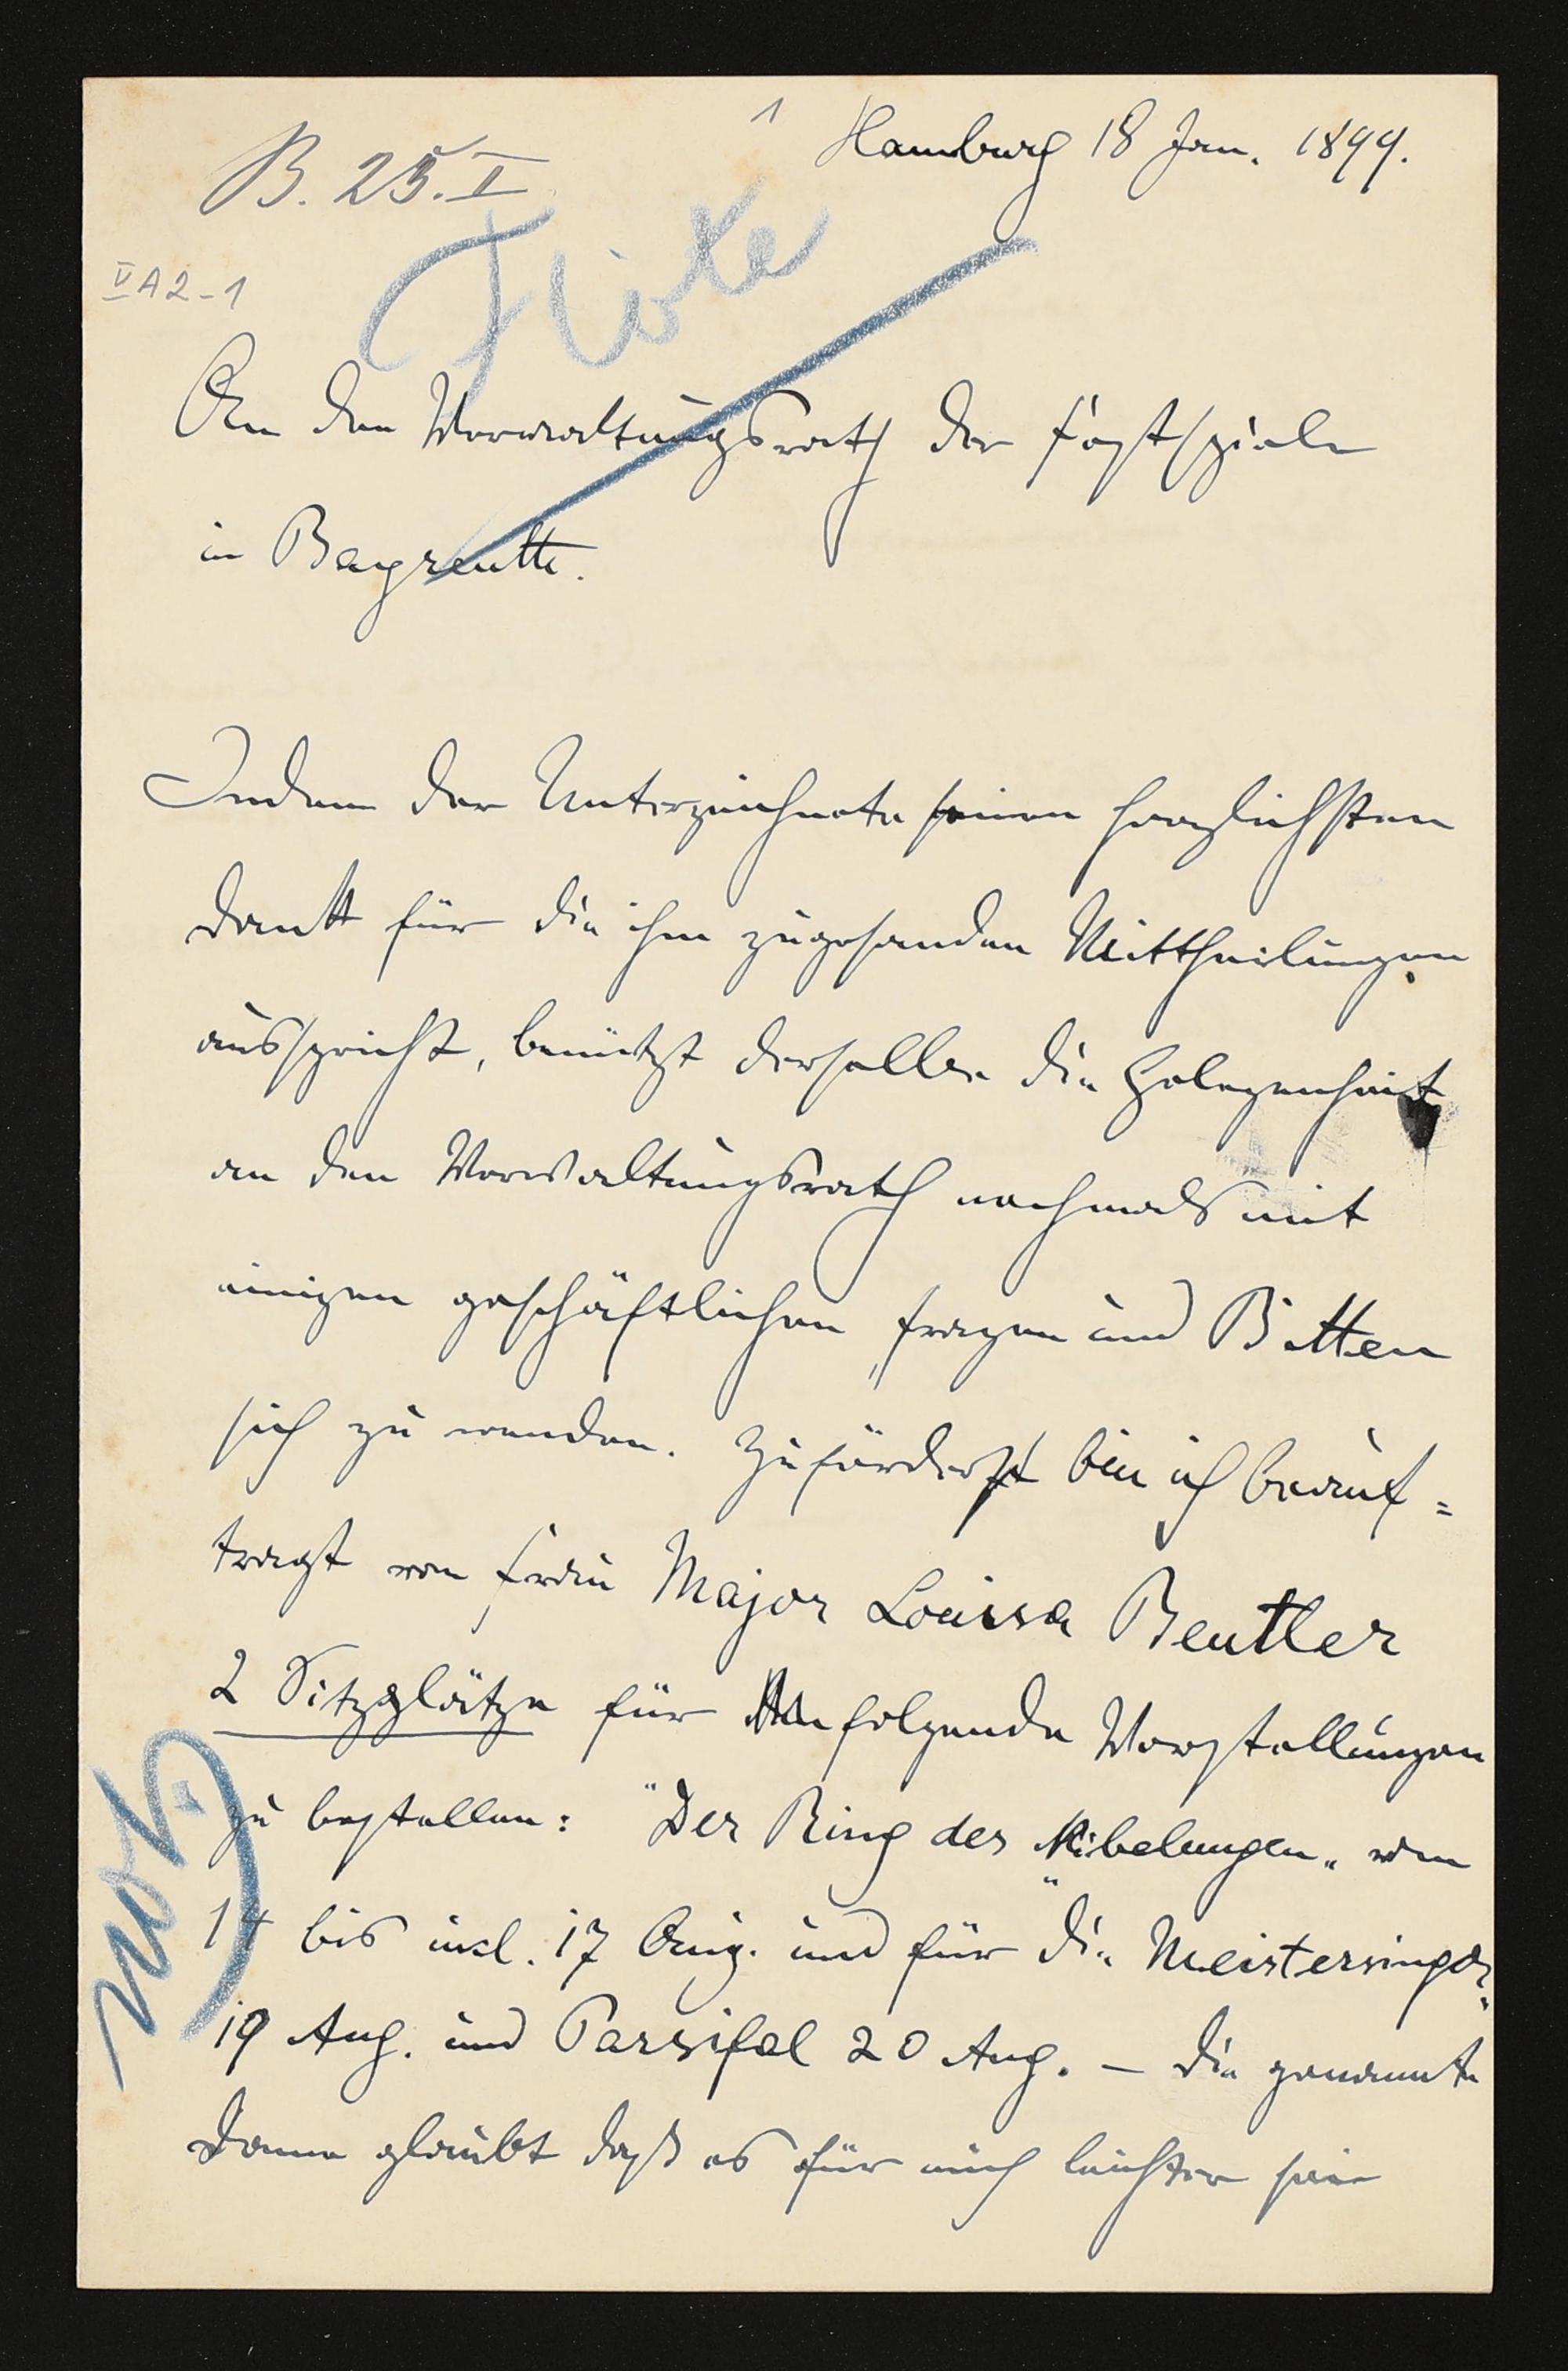 1
Hamburg 18 Jan. 1899.
B. 25. I
V A 2 - 1
An den Verwaltungsrath der Festspiele
in Bayreuth.
Indem der Unterzeichnete seinen herzlichsten
Dank für die ihm zugesanden Mittheilungen
ausspricht, benützt derselbe die Gelegenheit
an den Verwaltungsrath nochmals mit
einigen geschäftlichen Fragen und Bitten
sich zu wenden. Zuförderst bin ich beauf=
tragt von Frau Major Louisa Beutler
2 Sitzplätze für folgende Vorstellungen
zu bestellen: "Der Ring des Nibelungen" vom
14 bis incl. 17 Aug. und für die "Meistersinger"
19 Aug. und Parsifal 20 Aug. — Die genannte
Dame glaubt daß es für mich leichter sei
not.